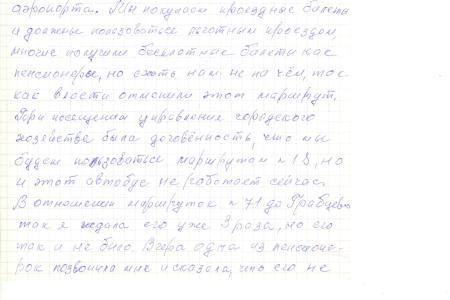 аэропорта. Мы покупаем проездные билеты
и должны пользоваться льготным проездом,
многие получили бесплатные билеты как
пенсионеры, но ехать нам не на чём, так
как власти отменили этот маршрут.
При посещении управления городского
хозяйства была договённость, что мы
будем пользоваться маршрутом № 18, но
и этот автобус не работает сейчас.
В отношении маршруток № 71 до Грабцево
так я ждала его уже 3 раза, но его
так и не было. Вчера одна из пенсионе-
рок позвонила мне и сказала, что его не